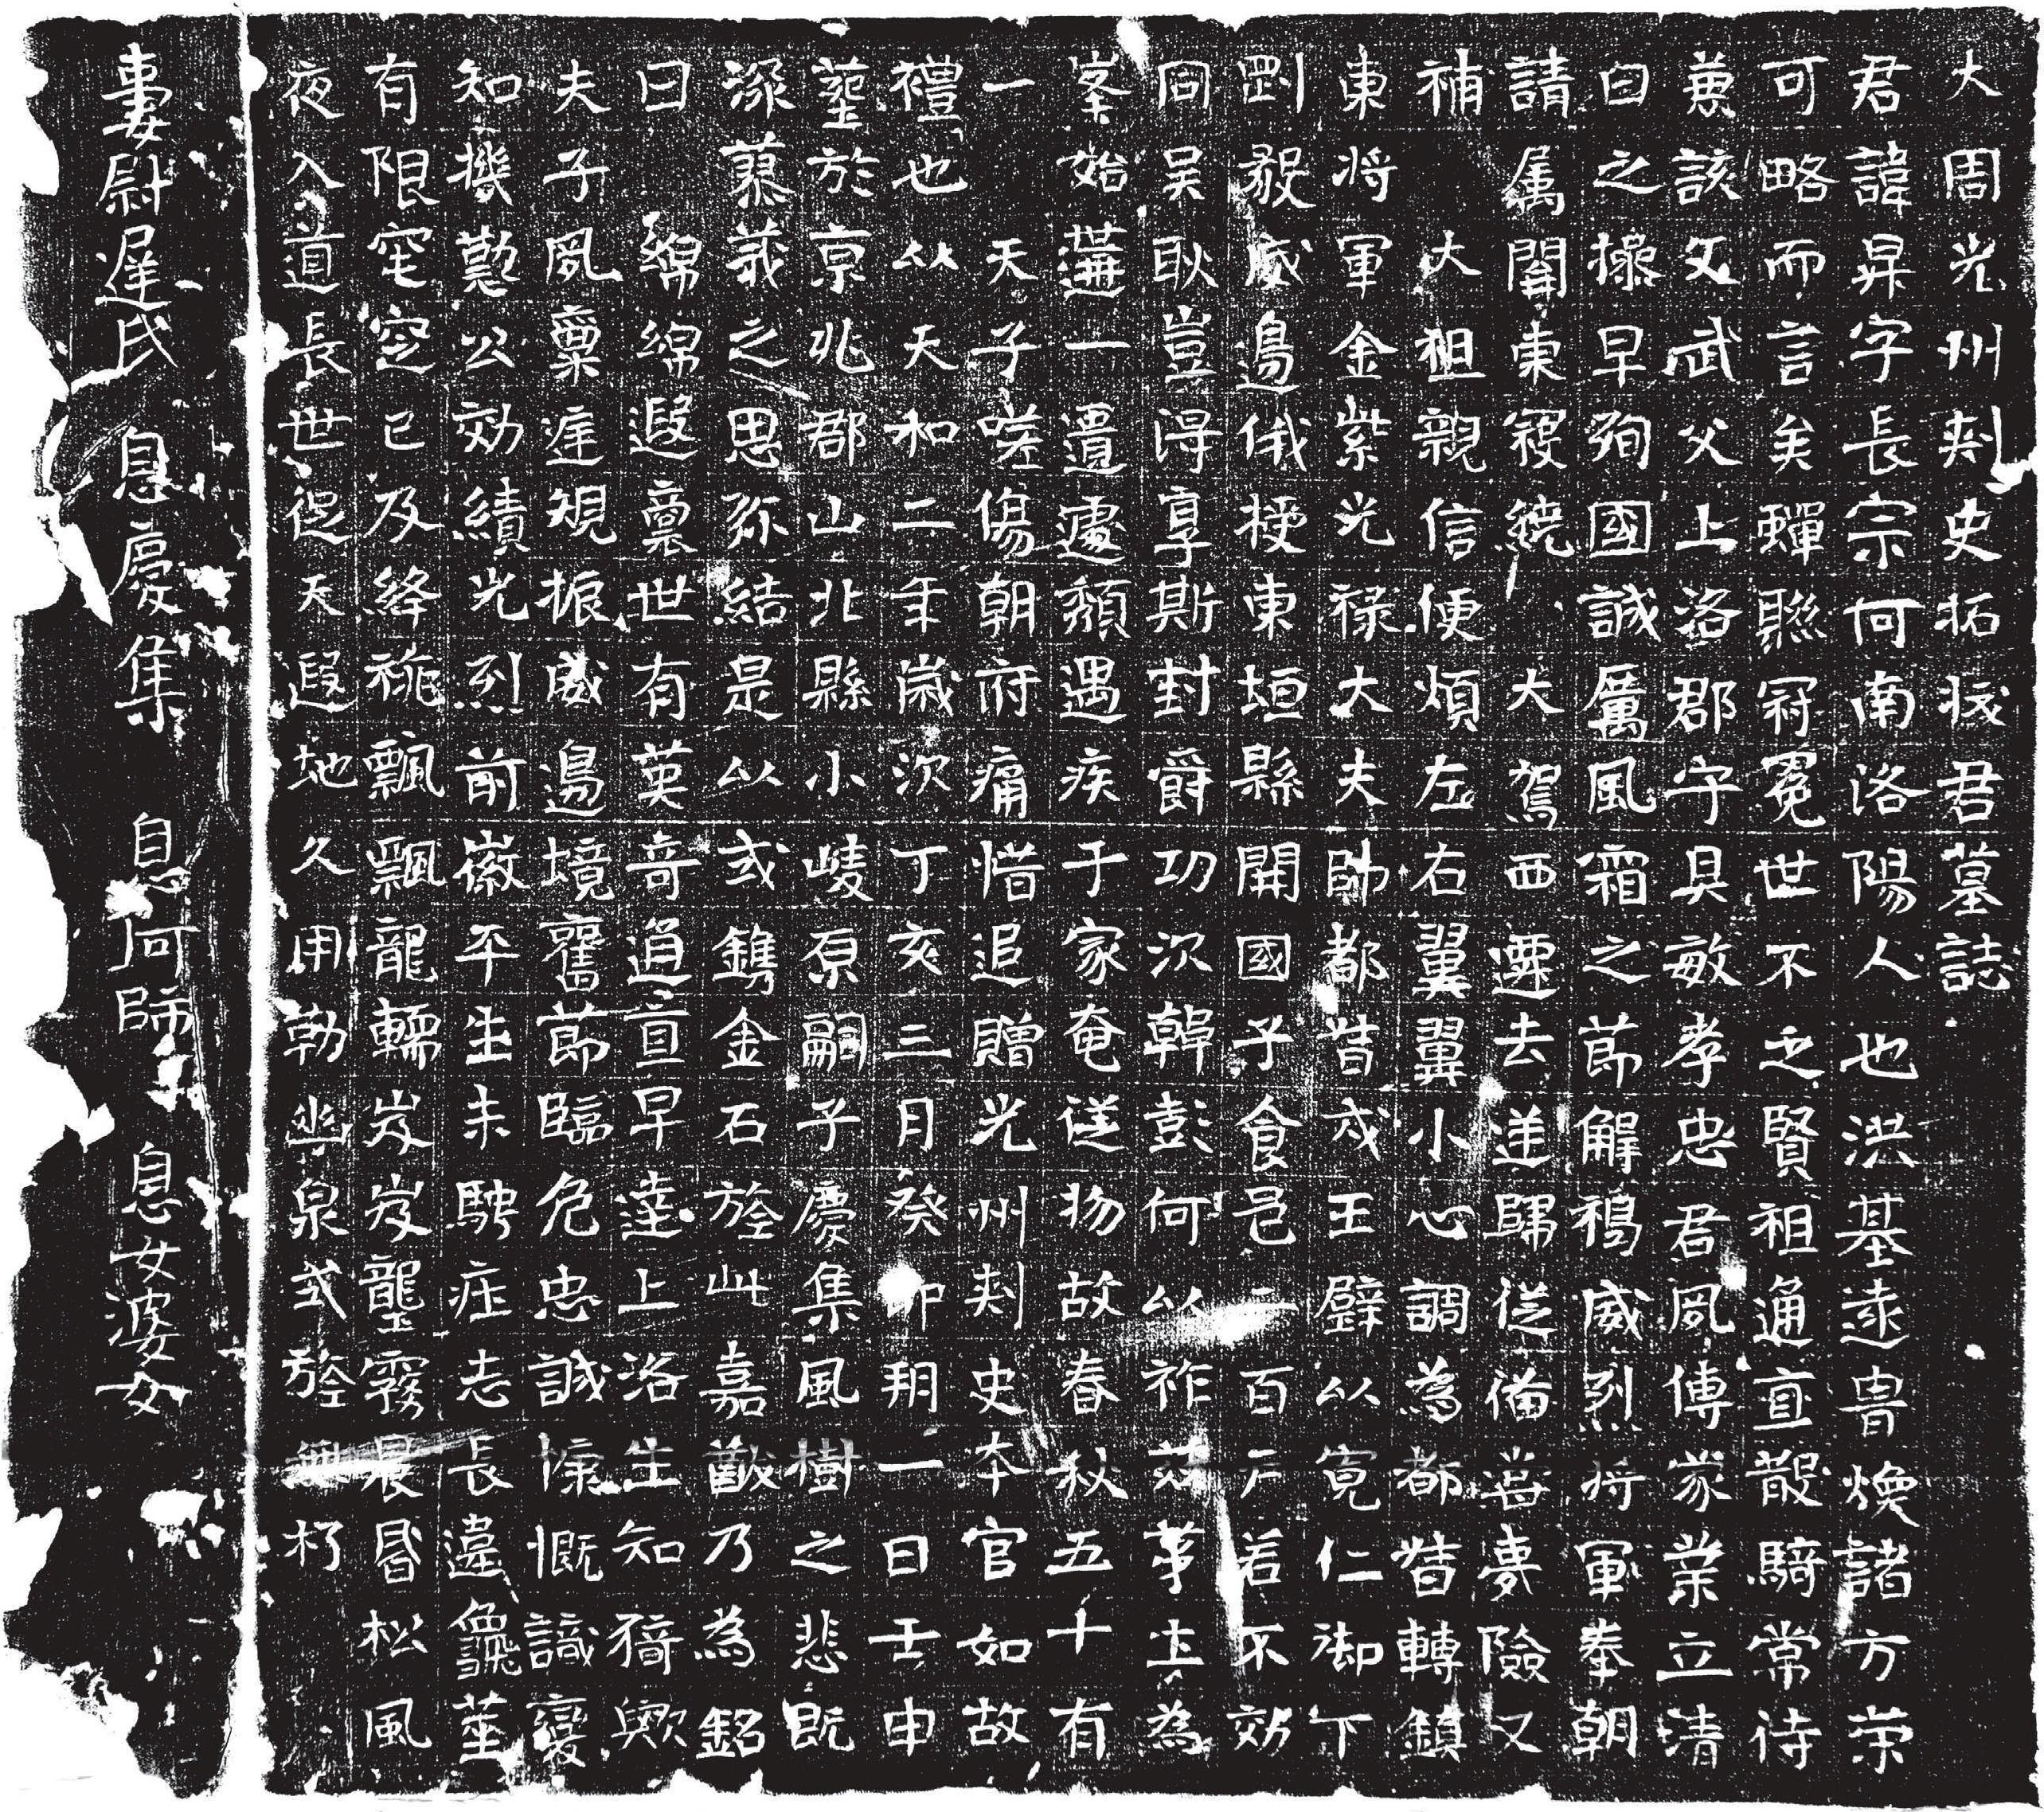 大周光州刾史拓拔君墓誌
君諱昇字長宗何南洛陽人也洪基遠胄煥諸方榮
可略而言矣蟬聯冠冕世不乏賢祖通直散騎常侍
兼該文武父上洛郡守具敏孝忠君夙傳家業立清
白之操早殉國誠厲風霜之節解褐威烈将軍奉朝
請属關東寇繞 大駕西遷去逆歸從備嘗夷險又
補 大祖親信便煩左右翼翼小心調為都督轉鎮
東将軍金紫光祿大夫帥都督戍王壁以寬仁御下
剛毅威邊俄授東垣縣開國子食邑二百户若不効
同吴耿豈得享斯封爵功次韓彭何以祚茲茅土為
峯始遘一遺遽頹遇疾于家奄逆物故春秋五十有
一 天子嗟傷朝府痛惜追贈光州刾史本官如故
禮也以天和二年歲次丁亥三月癸卯朔一日壬申
葬於京兆郡山北縣小崚原嗣子慶集風樹之悲既
深慕莪之思弥結是以式鐫金石旌此嘉猷乃為銘
曰 綿綿遐裔世有英奇通直早達上洛生知猗歟
夫子夙稟規振威邊境奮節臨危忠誠慷慨識變
知機懃公効績光烈前徽平生未騁志長違龜筮
有限窀穸已及絳旐飄飄龍轜岌岌壟霧晨昏松風
夜入道長世促天遐地久用勒幽泉式旌無朽
妻尉遲氏 息慶集 息何師 息女婆女